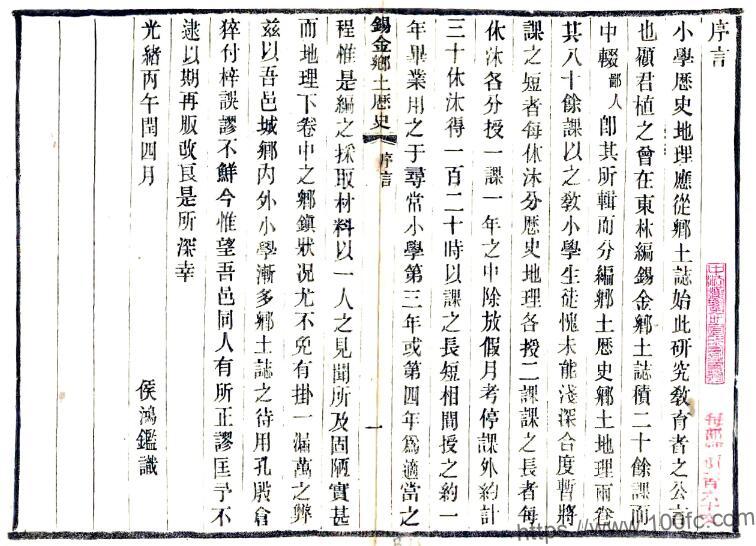 序言
小學歷史地理應從鄉土誌始此研究敎育者之公言
也顧君植之曾在東林編錫金鄉土誌積二十餘課而
中輟鄙人卽其所輯而分編鄉土歷史鄉土地理兩卷
其八十餘課以之敎小學生徒愧未能淺深合度暫將
課之短者每休沐分歷史地理各授二課課之長者每
休沐各分授一課一年之中除放假月考停課外約計
三十休沐得一百二十時以課之長短相間授之約一
年畢業用之于尋常小學第三年或第四年爲適當之
錫金鄉土歷史 序言 一
程惟是編之採取材料以一人之見聞所及固陋實甚
而地理下卷中之鄉鎭狀况尤不免有掛一漏萬之弊
茲以吾邑城鄉內外小學漸多鄉土誌之待用孔殷倉
猝付梓誤謬不鮮今惟望吾邑同人有所正謬匡予不
逮以期再版改良是所深幸
光緒丙午閏四月
侯鴻鑑識
https://www.100fc.com